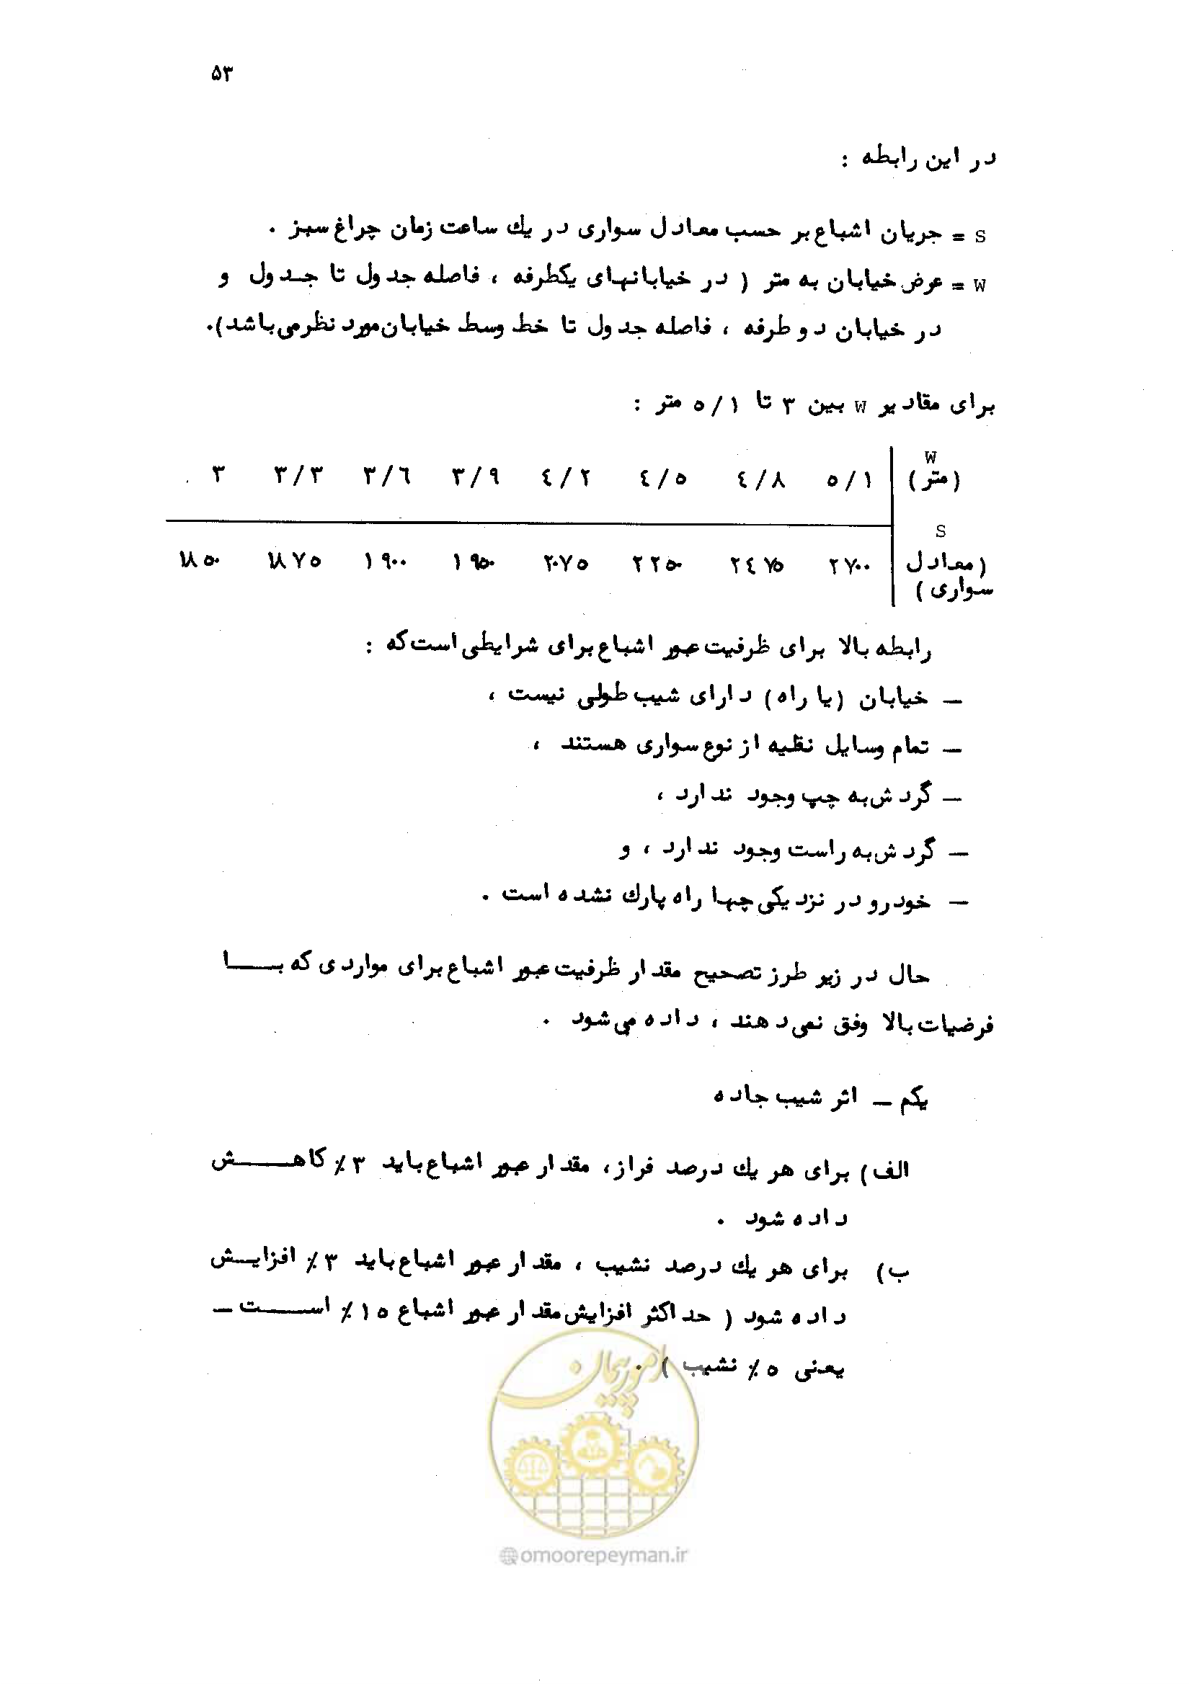 ۵۳
در این رابطه :
S = جریان اشباع بر حسب معادل سواری در یك ساعت زمان چراغ سبز .
W = عرض خیابان به متر ( در خیابانهای یکطرفه ، فاصله جدول تا جدول و
در خیابان دو طرفه ، فاصله جدول تا خط وسط خیابان مورد نظر می باشد).
برای مقادیر W بین ۳ تا ۵/۱ متر :
W
(متر) ۵/۱ ۴/۸ ۴/۵ ۴/۲ ۳/۹ ۳/۶ ۳/۳ ۳
S
(معادل ۲۷۰۰ ۲۴۷۵ ۲۲۵۰ ۲۰۷۵ ۱۹۵۰ ۱۹۰۰ ۱۸۷۵ ۱۸۵۰
سواری)
رابطه بالا برای ظرفیت عبور اشباع برای شرایطی است که :
— خیابان (یا راه) دارای شیب طولی نیست ،
— تمام وسایل نقلیه از نوع سواری هستند ،
— گردش به چپ وجود ندارد ،
— گردش به راست وجود ندارد ، و
— خودرو در نزدیکی چهار راه پارك نشده است .
حال در زیر طرز تصحیح مقدار ظرفیت عبور اشباع برای مواردی که بـــا
فرضیات بالا وفق نمی دهند ، داده می شود .
یکم — اثر شیب جاده
الف) برای هر یك درصد فراز، مقدار عبور اشباع باید ۳٪ کاهــــش
داده شود .
ب) برای هر یك درصد نشیب ، مقدار عبور اشباع باید ۳٪ افزایــش
داده شود ( حداکثر افزایش مقدار عبور اشباع ۱۵٪ اســــت —
یعنی ۵٪ نشیب ) .
امور پیمان
@omoorepeyman.ir